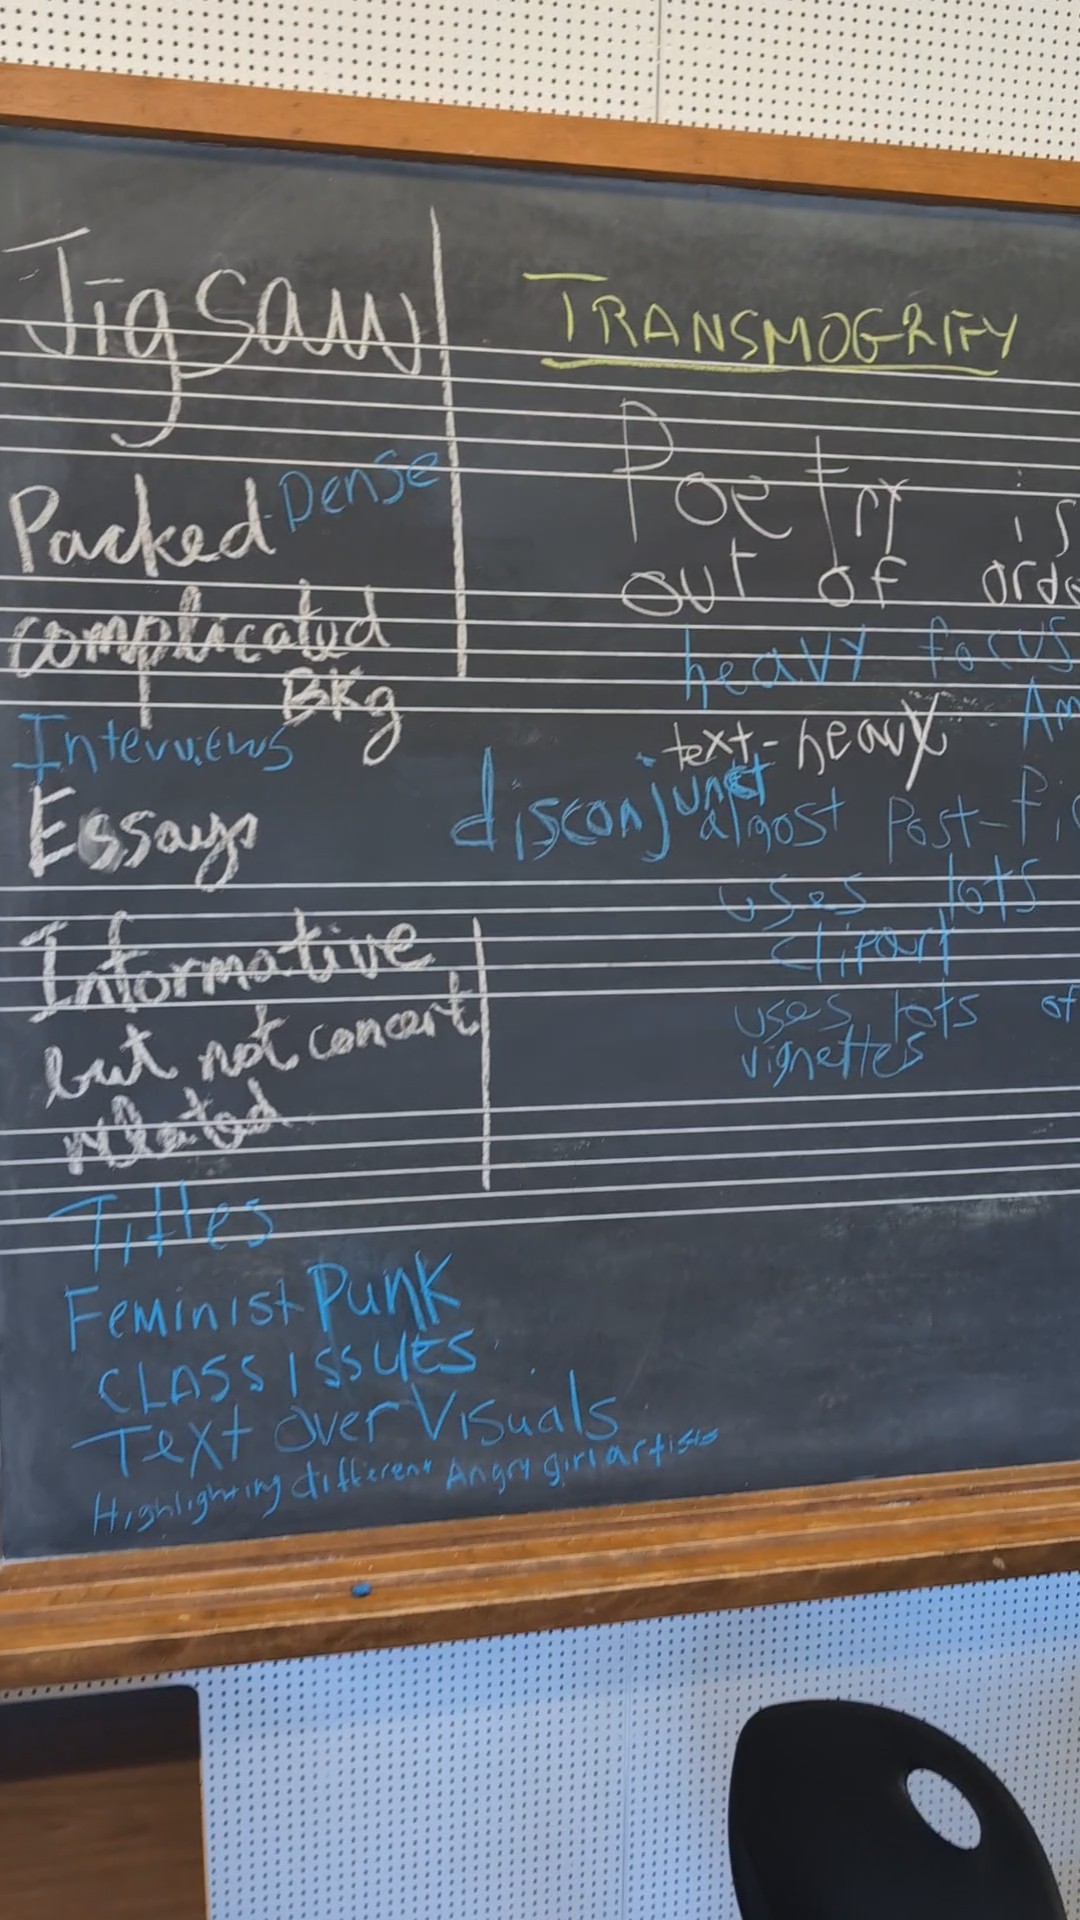 Jigsaw
Packed Dense
complicated
BKg
Interviews
Essays
Informative
but not concert
related
Titles
Feminist Punk
CLASS ISSUES
Text over Visuals
Highlighting different Angry girl artists
TRANSMOGRIFY
Poetry is
out of orde
heavy focus
Am
text-heavy
disconjunct
almost Post-fi
uses lots
clipart
uses lots of
vignettes